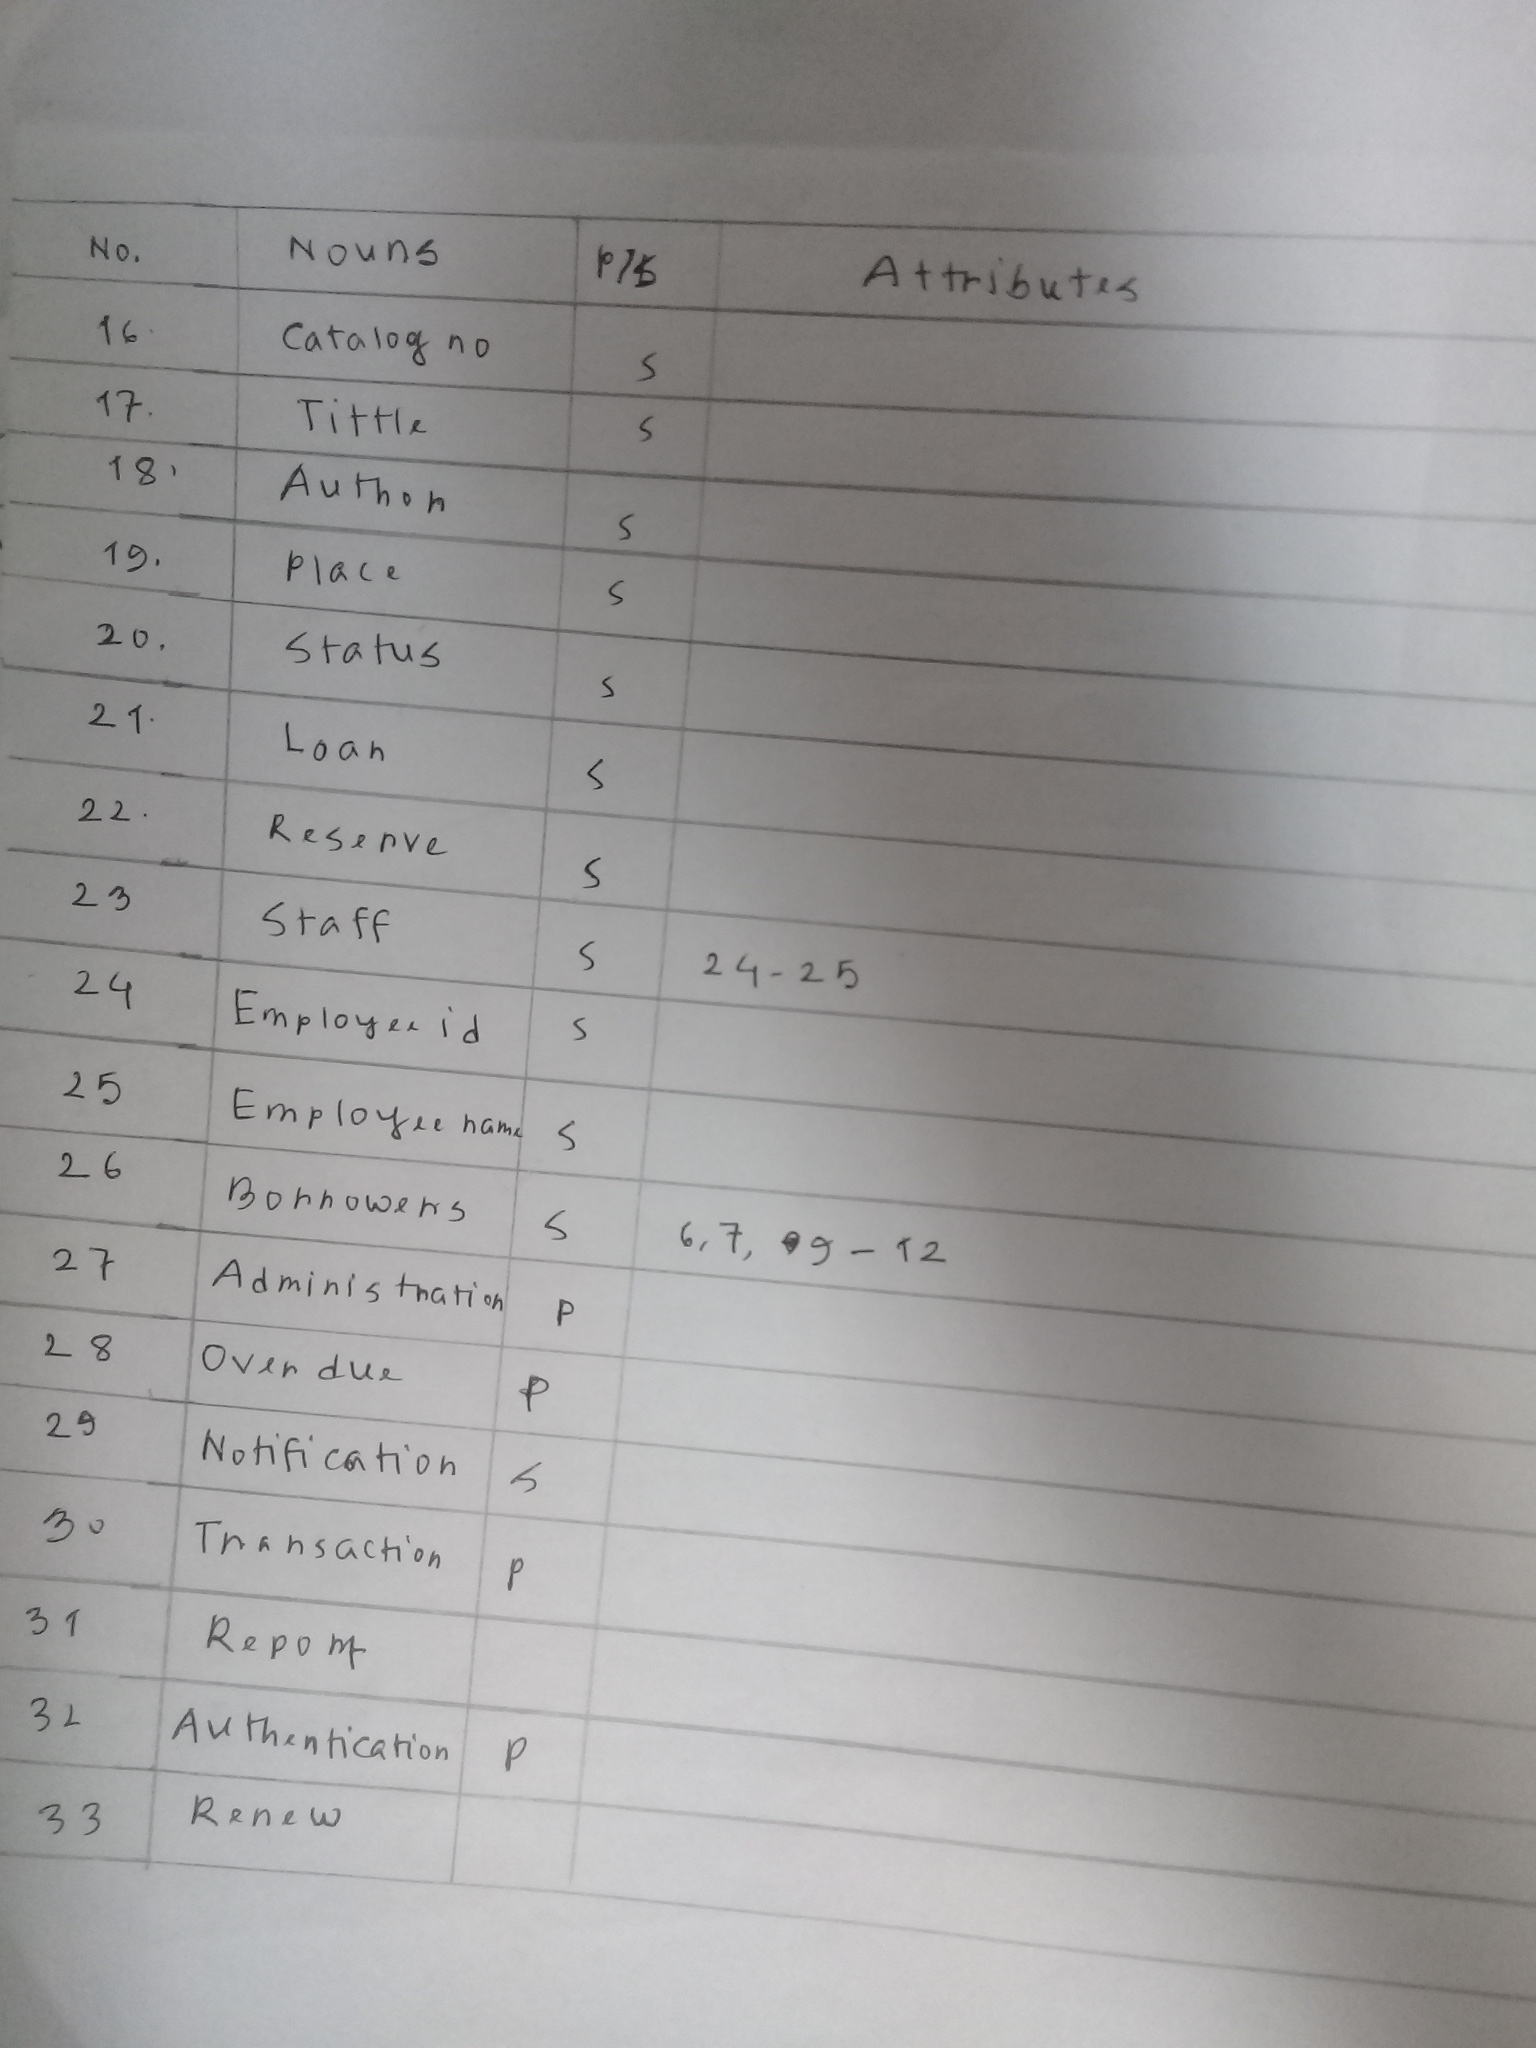 No. Nouns P/S Attributes
16. Catalog no S
17. Tittle S
18. Author S
19. Place S
20. Status S
21. Loan S
22. Reserve S
23 Staff S 24-25
24 Employee id S
25 Employee name S
26 Borrowers S 6, 7, 9 - 12
27 Administration P
28 Over due P
29 Notification S
30 Transaction P
31 Report
32 Authentication P
33 Renew